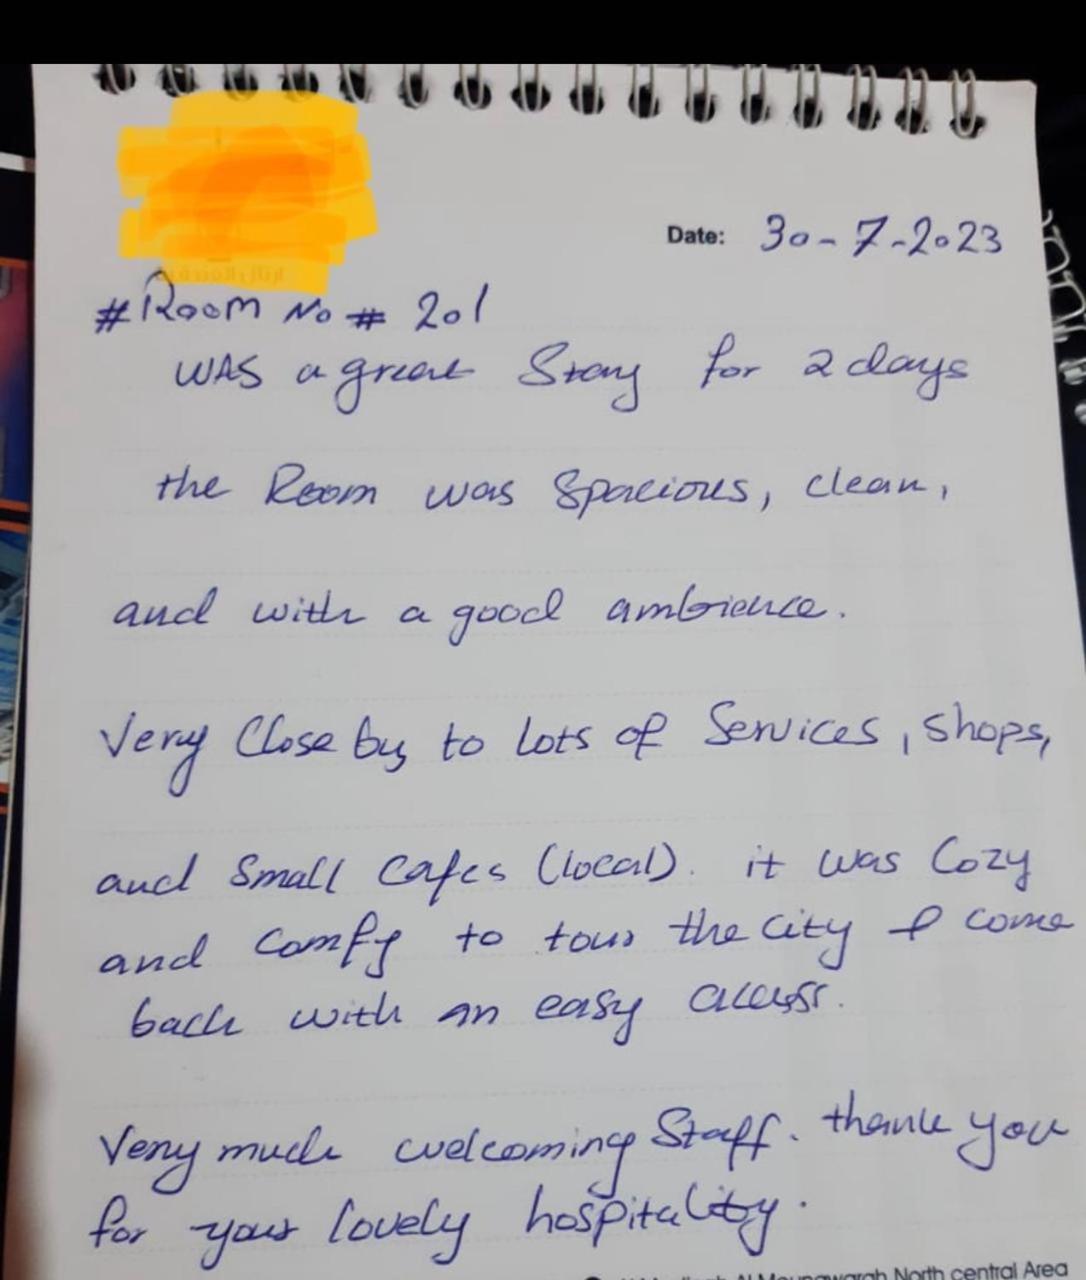 Date: 30-7-2023
#Room No # 201
WAS a great Stay for 2 days
the Room was Spacious, clean,
and with a good ambience.
Very Close by to lots of Services, shops,
and Small Cafes (local). it was Cozy
and Comfy to tour the city & come
back with an easy access.
Very much welcoming Staff. thank you
for your lovely hospitality.
Al Mounawarah North central Area